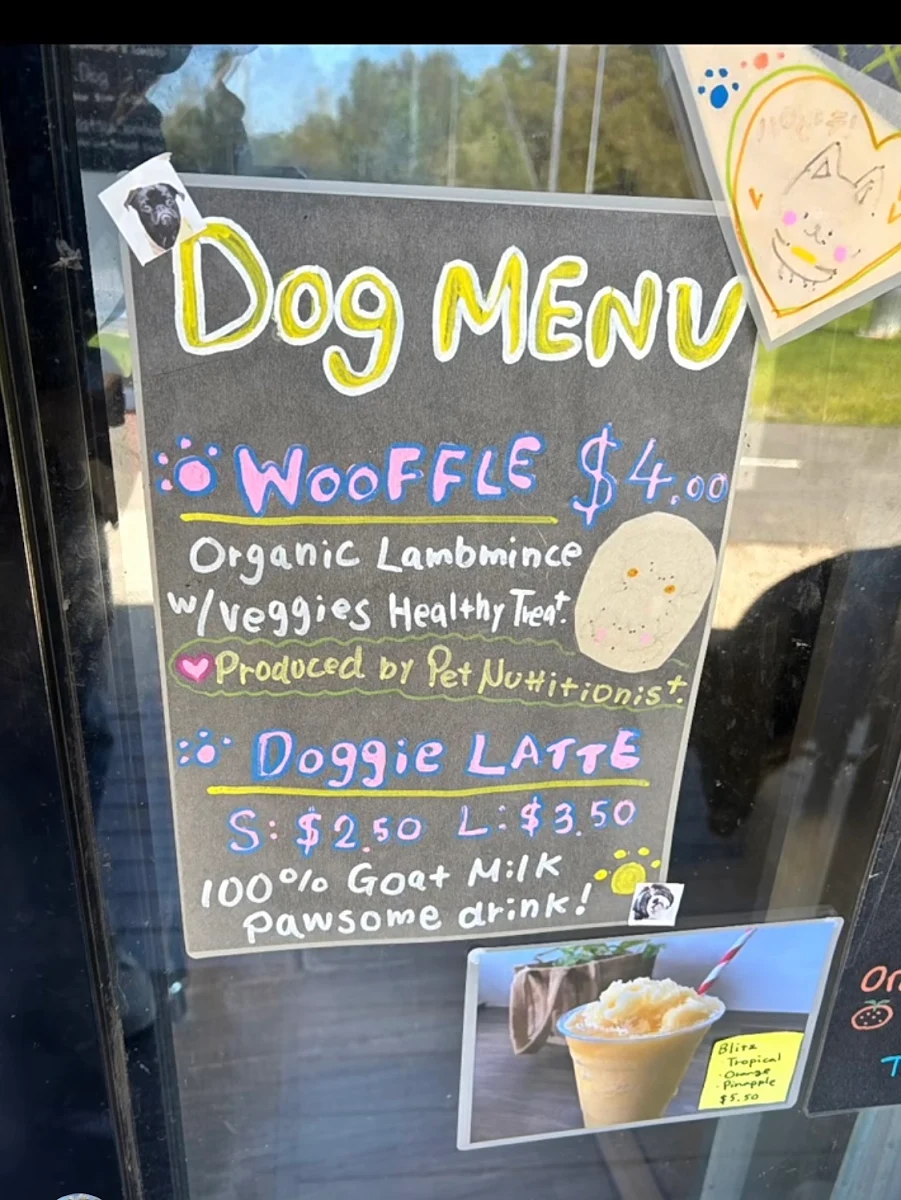 Dog MENU
WOOFFLE $4.00
Organic Lambmince
w/veggies Healthy Treat.
Produced by Pet Nuttitionist.
Doggie LATTE
S: $2.50 L: $3.50
100% Goat Milk
pawsome drink!
Blitz
· Tropical
· Orange
· Pinapple
$5.50